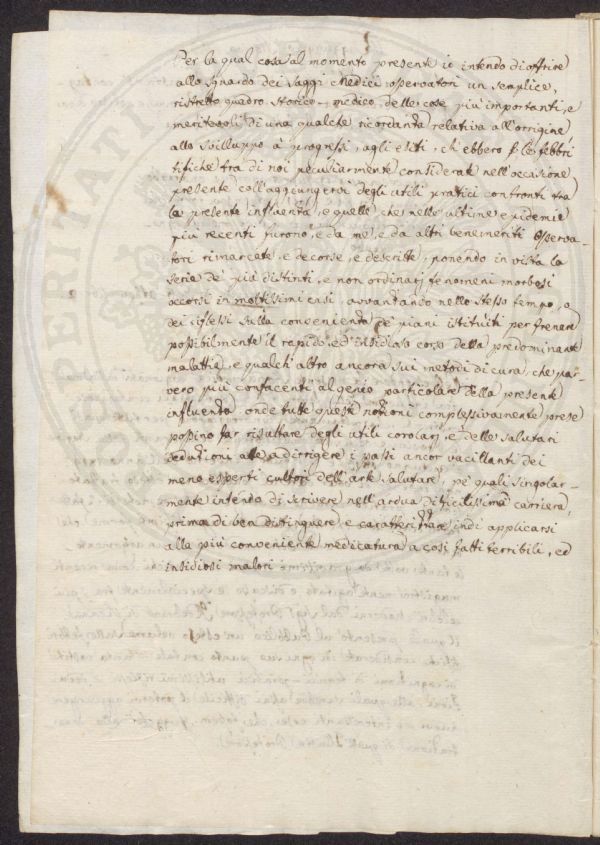 Per la qual cosa al momento presente io intendo di offrire
allo sguardo dei saggi Medici osservatori un semplice,
ristretto quadro storico-medico delle cose più importanti, e
meritevoli di una qualche ricordanza relativa all'orrigine
allo sviluppo a' progressi, agli esiti, ch'ebbero le febbri
tifiche fra di noi peculiarmente considerate nell'occasione
presente coll'aggiungervi degli utili pratici confronti fra
la presente influenza, e quelle che nelle ultime epidemie
più recenti furono, e da me, e da altri benemeriti Osserva-
tori rimarcate, e decorse, e descritte, ponendo in vista la
serie de' più distinti, e non ordinarj fenomeni morbosi
occorsi in moltissimi casi, avvanzando nello stesso tempo,
dei riflessi sulla convenienza de' piani istituiti per frenare
possibilmente il rapido, ed insidioso corso della predominante
malattia, e qualch'altro ancora sui metodi di cura, che par-
vero più confacenti al genio particolare della presente
influenza, onde tutte queste nozioni complessivamente prese
possino far risultare degli utili corolarj, e delle salutari
deduzioni atte a dirrigere i passi ancor vacillanti dei
meno esperti cultori dell'arte salutare, pe' quali singolar-
mente intendo di scrivere nell'ardua dificilissima carriera,
prima di ben distinguere, e caratterizzare, indi applicarsi
alla più conveniente medicatura a così fatti terribili, ed
insidiosi malori.